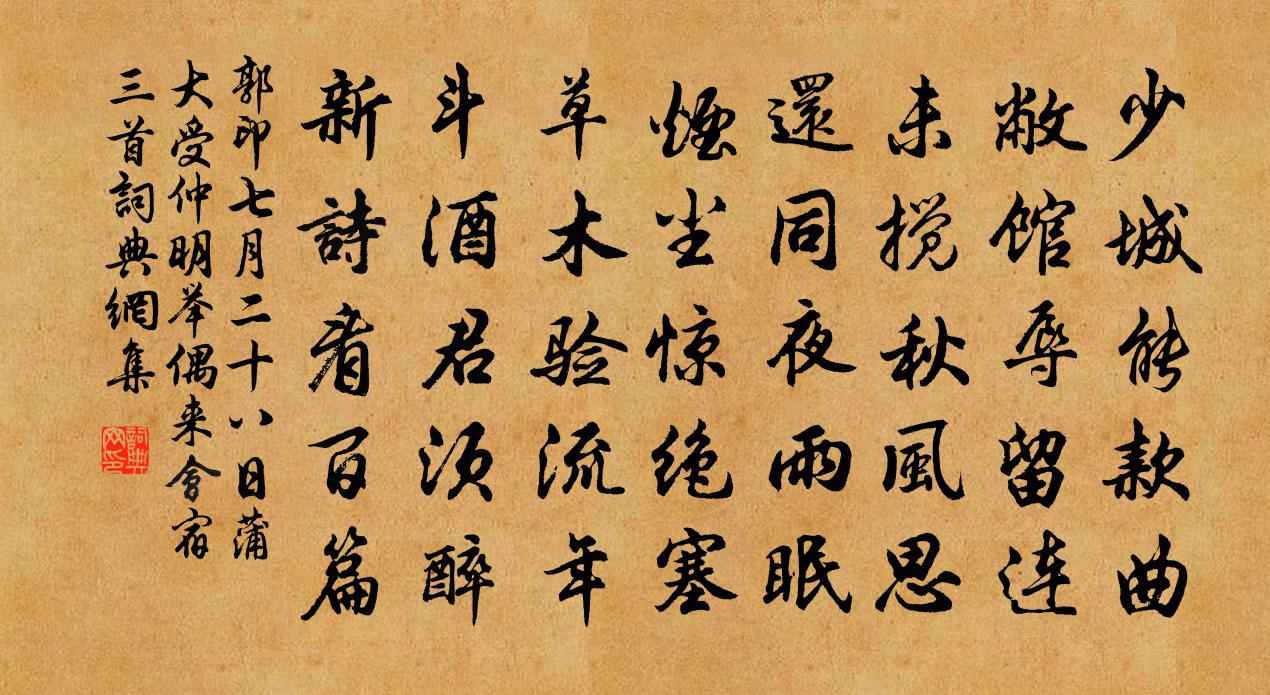 少城能款曲
敝馆辱留连
未搅秋風思
還同夜雨眠
煙尘惊绝塞
草木验流年
斗酒君须醉
新詩看百篇
郭印七月二十八日蒲
大受仲明举偶来会宿
三首詞典網集
詞典网印